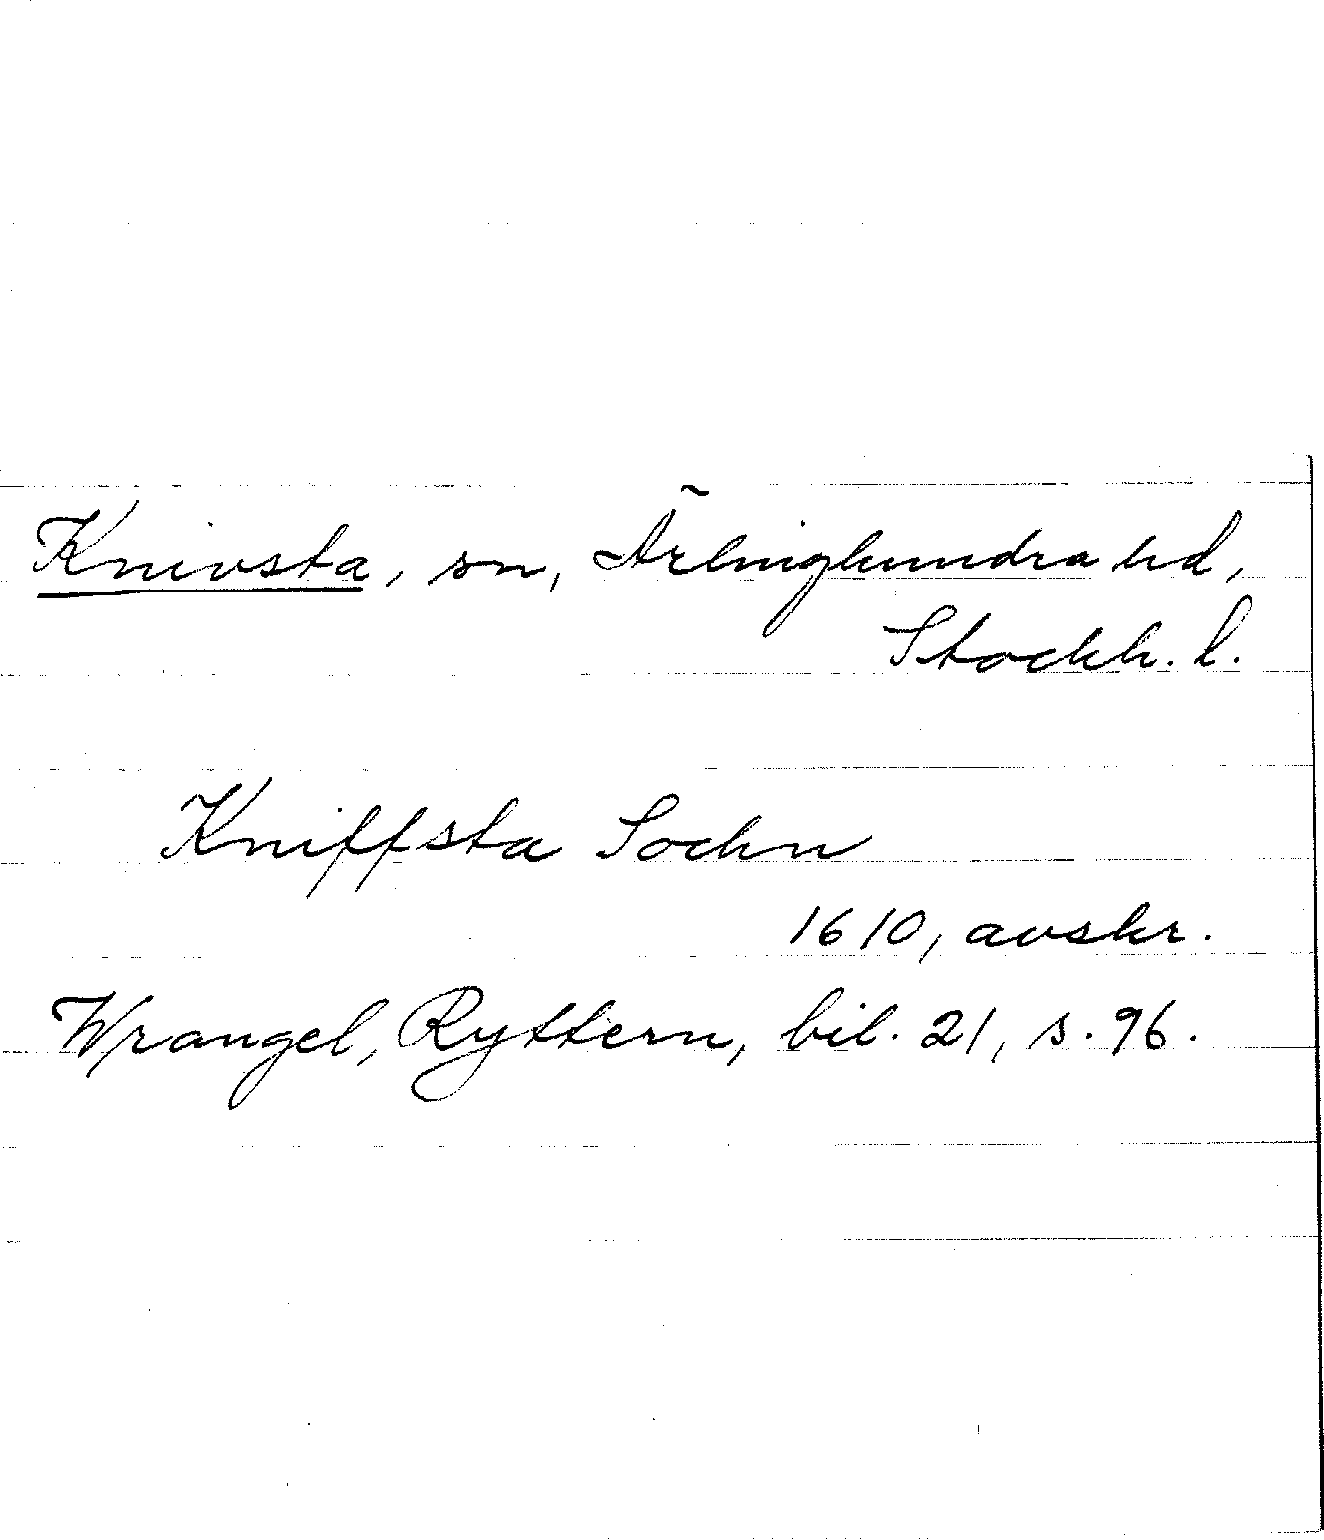 Knivsta, sn, Ärlinghundra hd,
Stockh. l.
Kniffsta Sochn
1610, avskr.
Wrangel, Ryttern, bil. 21, s. 96.